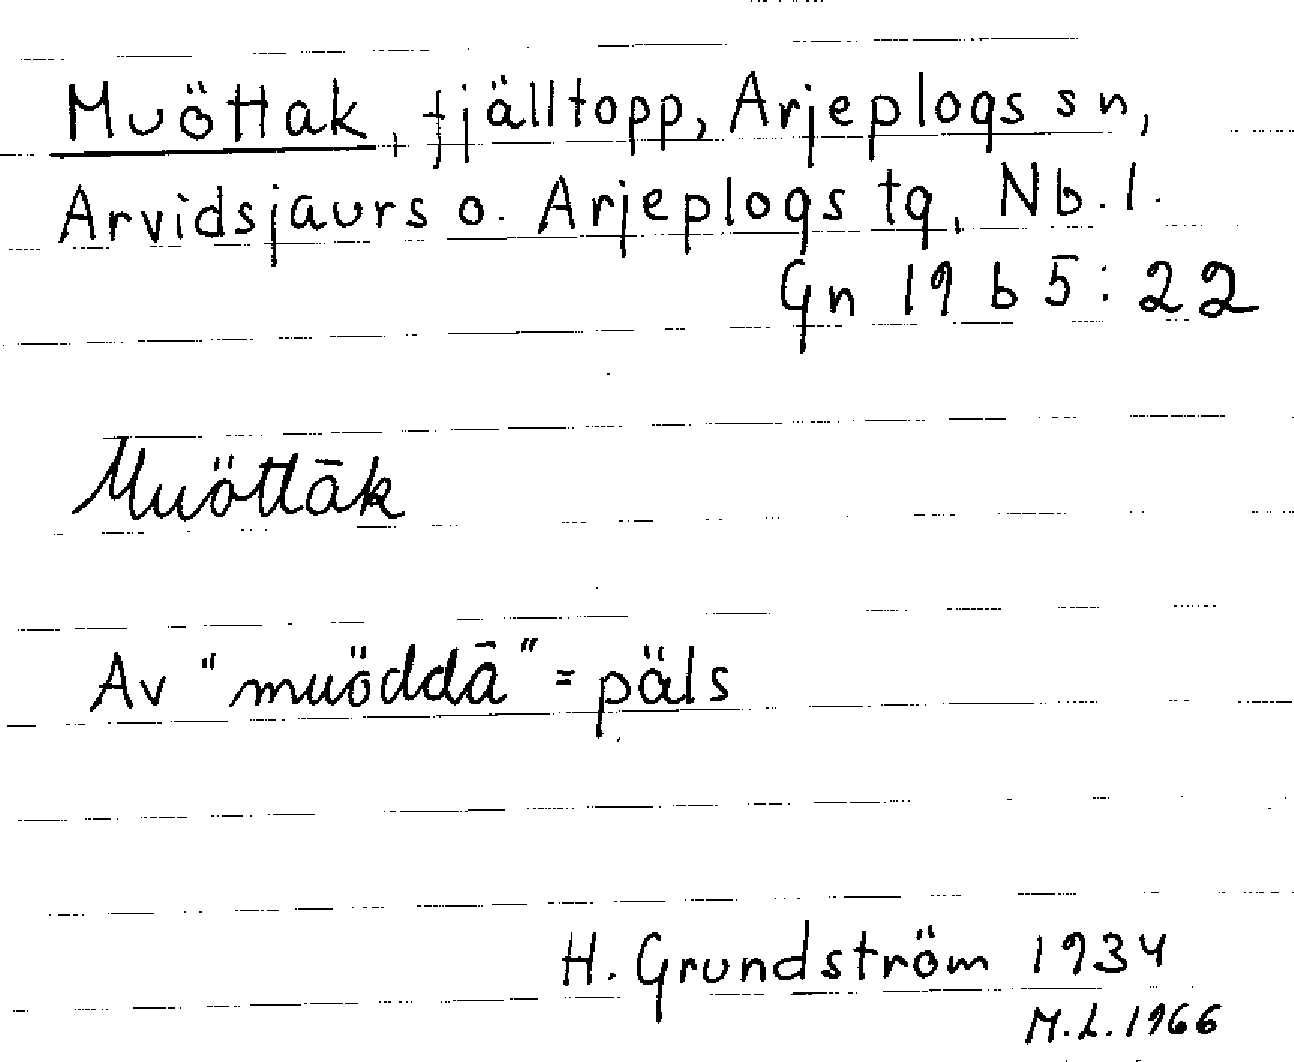 Muöttak, fjälltopp, Arjeplogs sn,
Arvidsjaurs o. Arjeplogs tg, Nb. l.
Gn 19 b 5:22
Muöttāk
Av "muöddā" = päls
H. Grundström 1934
M.L. 1966